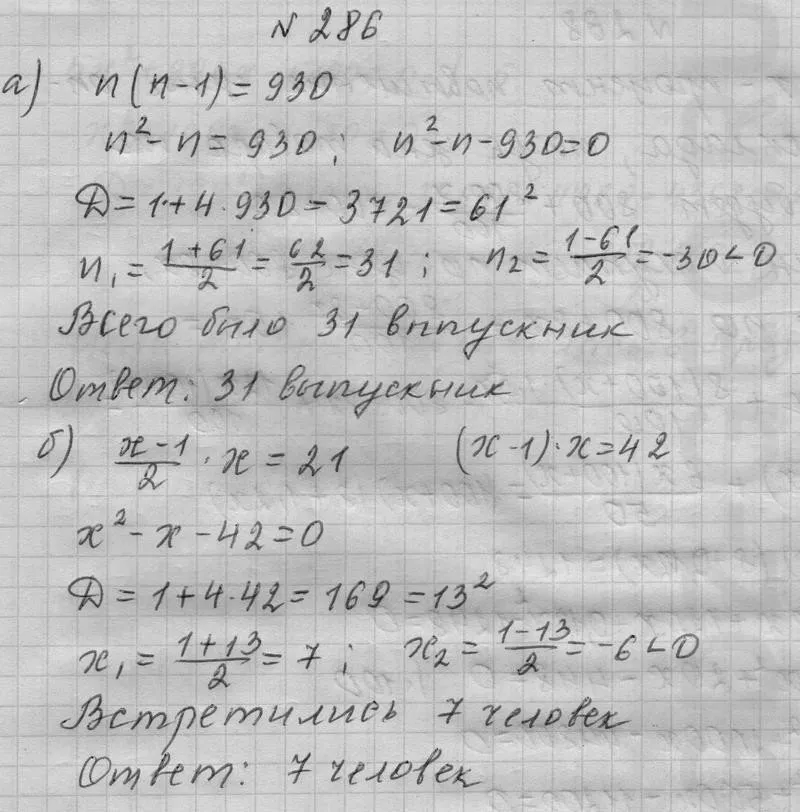 № 286
а) n(n-1)=930
n²-n=930; n²-n-930=0
Д=1+4·930=3721=61²
n₁=(1+61)/2=62/2=31; n₂=(1-61)/2=-30<0
Всего было 31 вппускник
Ответ: 31 выпускник
б) (x-1)/2·x=21 (x-1)·x=42
x²-x-42=0
Д=1+4·42=169=13²
x₁=(1+13)/2=7; x₂=(1-13)/2=-6<0
Встретились 7 человек
Ответ: 7 человек